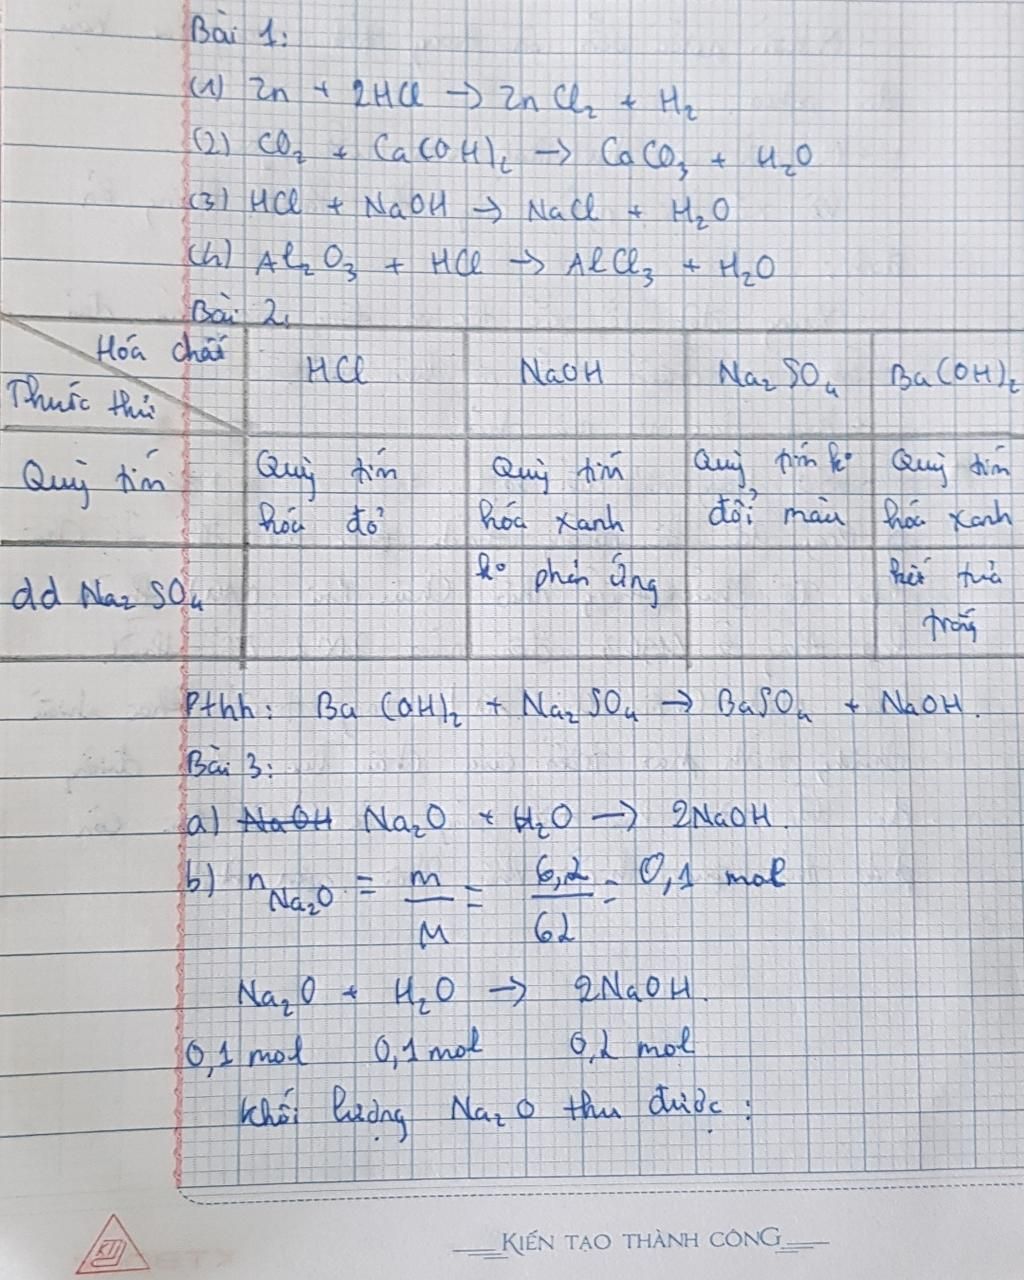 Bài 1:
(1) Zn + 2HCl → ZnCl₂ + H₂
(2) CO₂ + Ca(OH)₂ → CaCO₃ + H₂O
(3) HCl + NaOH → NaCl + H₂O
(4) Al₂O₃ + HCl → AlCl₃ + H₂O
Bài 2.
Hóa chất
Thuốc thử
HCl NaOH Na₂SO₄ Ba(OH)₂
Quỳ tím
Quỳ tím hóa đỏ
Quỳ tím hóa xanh
Quỳ tím ko đổi màu
Quỳ tím hóa xanh
dd Na₂SO₄
ko phản ứng
kết tủa trắng
Pthh: Ba(OH)₂ + Na₂SO₄ → BaSO₄ + NaOH.
Bài 3:
a) NaOH Na₂O + H₂O → 2NaOH.
b) nNa₂O = m/M = 6,2/62 = 0,1 mol
Na₂O + H₂O → 2NaOH.
0,1 mol 0,1 mol 0,2 mol
Khối lượng Na₂O thu được:
KTT
KIẾN TẠO THÀNH CÔNG